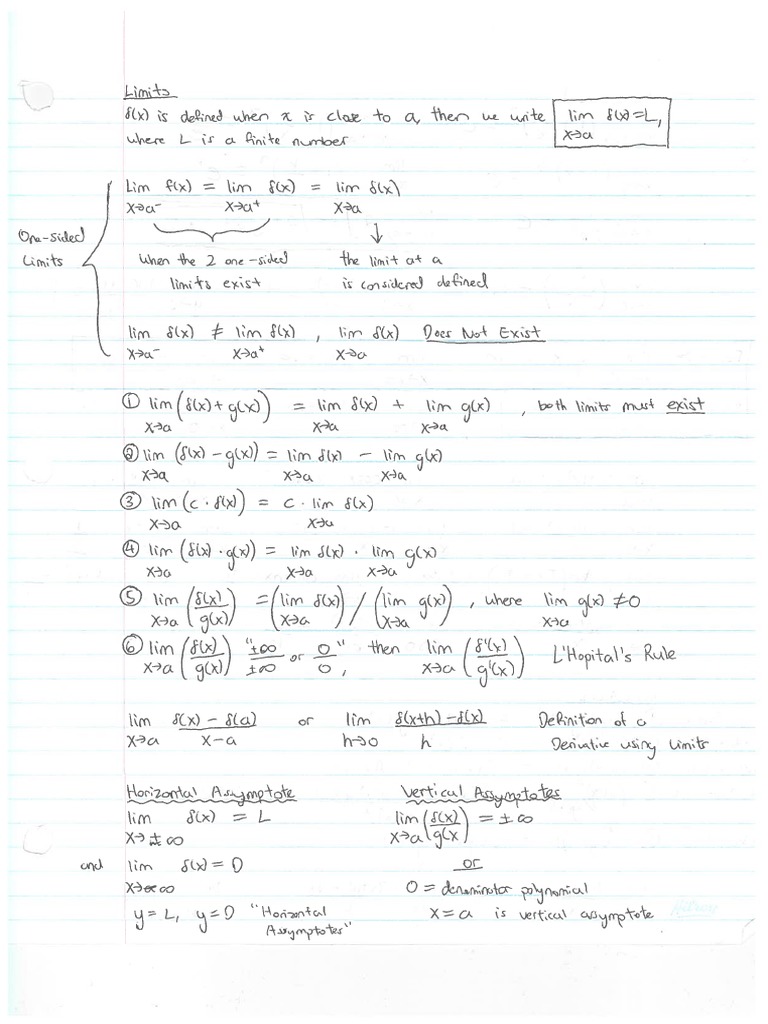 Limits
f(x) is defined when x is close to a, then we write lim x→a f(x) = L,
where L is a finite number
Lim x→a⁻ f(x) = lim x→a⁺ f(x) = lim x→a f(x)
One-sided
Limits
when the 2 one-sided
limits exist
the limit at a
is considered defined
lim x→a⁻ f(x) ≠ lim x→a⁺ f(x) , lim x→a f(x) Does Not Exist
① lim x→a (f(x) + g(x)) = lim x→a f(x) + lim x→a g(x) , both limits must exist
② lim x→a (f(x) - g(x)) = lim x→a f(x) - lim x→a g(x)
③ lim x→a (c · f(x)) = c · lim x→a f(x)
④ lim x→a (f(x) · g(x)) = lim x→a f(x) · lim x→a g(x)
⑤ lim x→a (f(x)/g(x)) = (lim x→a f(x)) / (lim x→a g(x)) , where lim x→a g(x) ≠ 0
⑥ lim x→a (f(x)/g(x)) "±∞/±∞ or 0/0", then lim x→a (f'(x)/g'(x)) L'Hopital's Rule
lim x→a f(x) - f(a) / x - a or lim h→0 f(x+h) - f(x) / h Definition of a
Derivative using Limits
Horizontal Assymptote
lim x→±∞ f(x) = L
and lim f(x) = D
y = L, y = D "Horizontal
Assymptotes"
Vertical Assymptotes
lim x→a (f(x)/g(x) = ±∞
or
0 = denominator polynomial
x = a is vertical asymptote